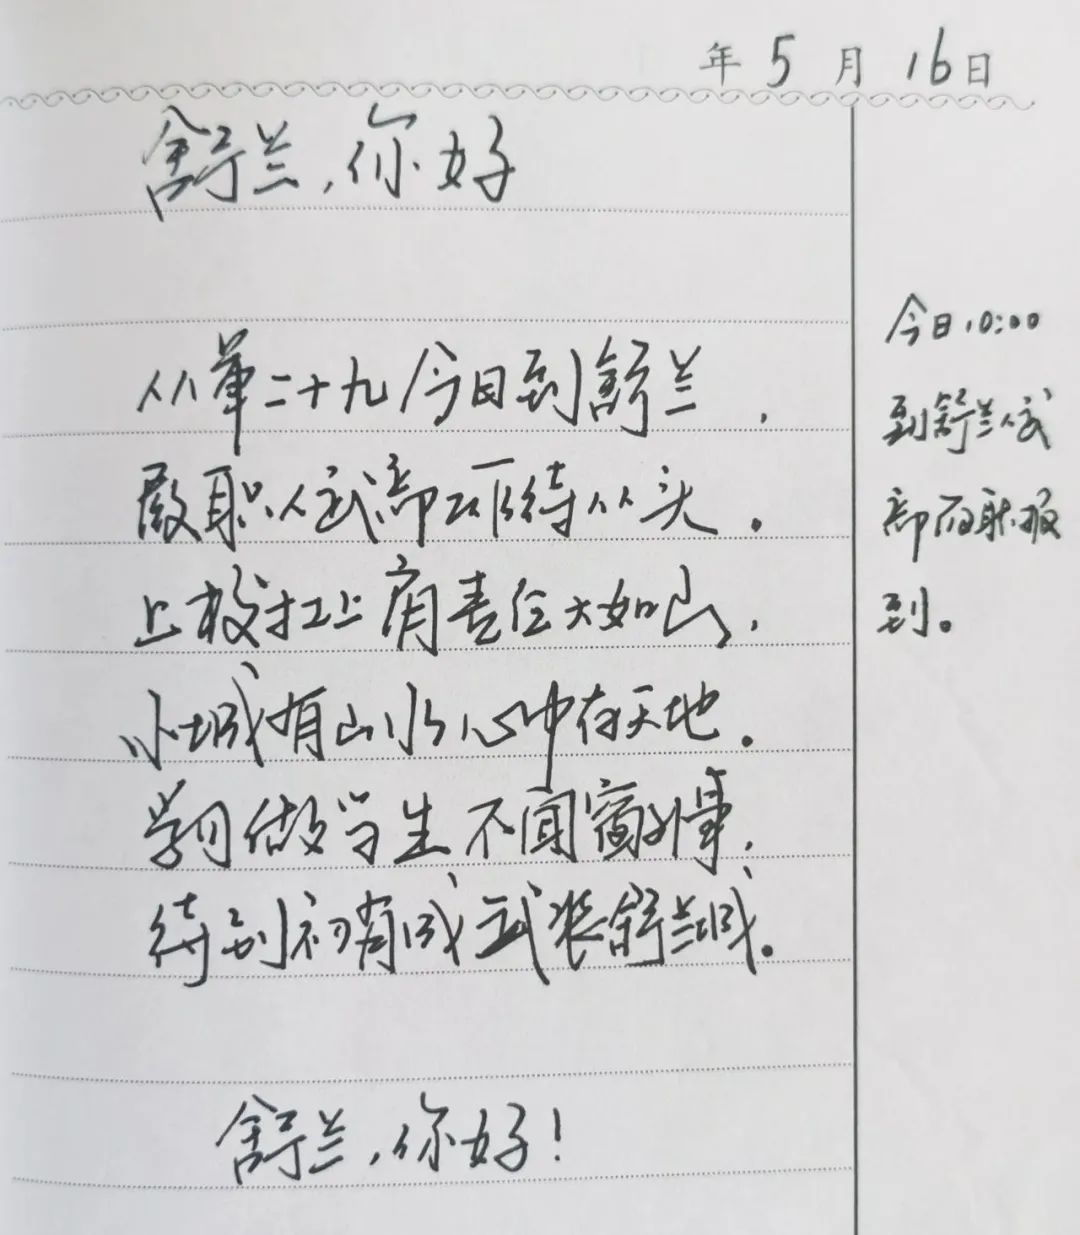 年 5 月 16 日
舒兰，你好
从军二十九今日到舒兰，
履职人武部一切待从头。
上校扛上肩责任大如山，
小城有山水心中存天地。
学习做学生不闻窗外事，
待到初有成武装舒兰城。
舒兰，你好！
今日10:00
到舒兰人武
部履职报
到。